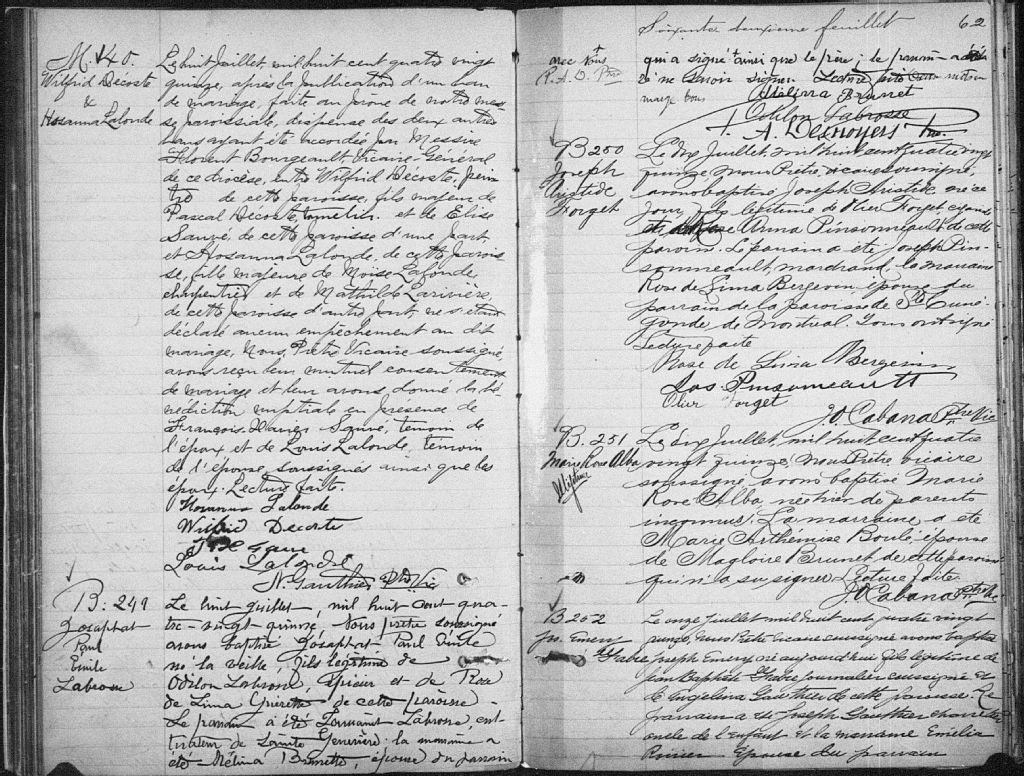 M. 140.
Wilfrid Décoste
&
Hosanna Lalonde
Le huit Juillet mil huit cent quatre vingt
quinze, après la publication d'un ban
de mariage, faite au prône de notre mes
se paroissiale, dispense des deux autres
bans ayant été accordée par Messire
Florent Bourgeault, Vicaire-Général
de ce diocèse, entre Wilfrid Décoste, pein
tre de cette paroisse, fils majeur de
Pascal Décoste, et de Elise
Sauvé, de cette paroisse d'une part,
et Hosanna Lalonde, de cette parois
se, fille majeure de Moise Lalonde,
charpentier et de Mathilde Larivière,
de cette paroisse d'autre part, ne s'étant
déclaré aucun empêchement au dit
mariage, Nous, Prêtre Vicaire soussigné,
avons reçu leur mutuel consentement
de mariage et leur avons donné la bé-
nédiction nuptiale en présence de
François Sauvé, témoin de
l'époux et de Louis Lalonde, témoin
de l'épouse, soussignés ainsi que les
époux. Lecture faite.
Hosanna Lalonde
Wilfrid Decoste
Louis Lalonde
N. Gauthier Ptre Vic
B: 249
Josaphat
Paul
Emile
Labrosse
Le huit juillet, mil huit cent qua-
tre-vingt-quinze Nous prêtre soussigné
avons baptisé Josaphat Paul Emile
né la veille, fils légitime de
Odilon Labrosse, épicier et de Rose
de Lima de cette paroisse.
Le parrain a été Labrosse, cul-
tivateur de Sainte Geneviève: la marraine a
été Mélina Brunette, épouse du parrain
Soixante deuxième feuillet
62
avec nous
P. A. D. Ptre
qui a signé ainsi que le père; le parrain a dé
ne savoir signer. Lecture faite
marge bons
Brunet
Odilon Labrosse
A. Desnoyers Ptre.
B 250
Joseph
Aristide
Forget
Le dix Juillet, mil huit cent quatre vingt
quinze Nous Prêtre, vicaire soussigné,
avons baptisé Joseph Aristide né ce
jour, fils légitime de Olier Forget,
et de Anna Pinsonneault de cette
paroisse. Le parrain a été Joseph Pin-
sonneault, marchand, la marraine
Rose de Lima Bergevin, épouse du
parrain de la paroisse de Ste Cuné-
gonde de Montreal. Tous ont signé
Lecture faite
Rose de Lima Bergevin
Jos Pinsonneault
Olier Forget
J. O. Cabana Ptre Vic
B. 251
Marie Rose Alba
Le dix Juillet, mil huit cent quatre
vingt quinze, Nous Prêtre vicaire
soussigné, avons baptisé Marie
Rose Alba, née hier de parents
inconnus. La marraine a été
Marie Arthemise Boulé, épouse
de Magloire Brunet de cette paroisse
qui n'a su signer. Lecture faite.
J. O. Cabana Ptre Vic
B 252
Jos. Emery
Le onze Juillet mil huit cent quatre vingt
quinze, nous Prêtre vicaire soussigné avons baptisé
Joseph Emery né aujourd'hui fils légitime de
Jean Baptiste journalier soussigné et
de Angelina Gauthier de cette paroisse. Le
parrain a été Joseph Gauthier
oncle de l'Enfant et la marraine Emélia
Epouse du parrain